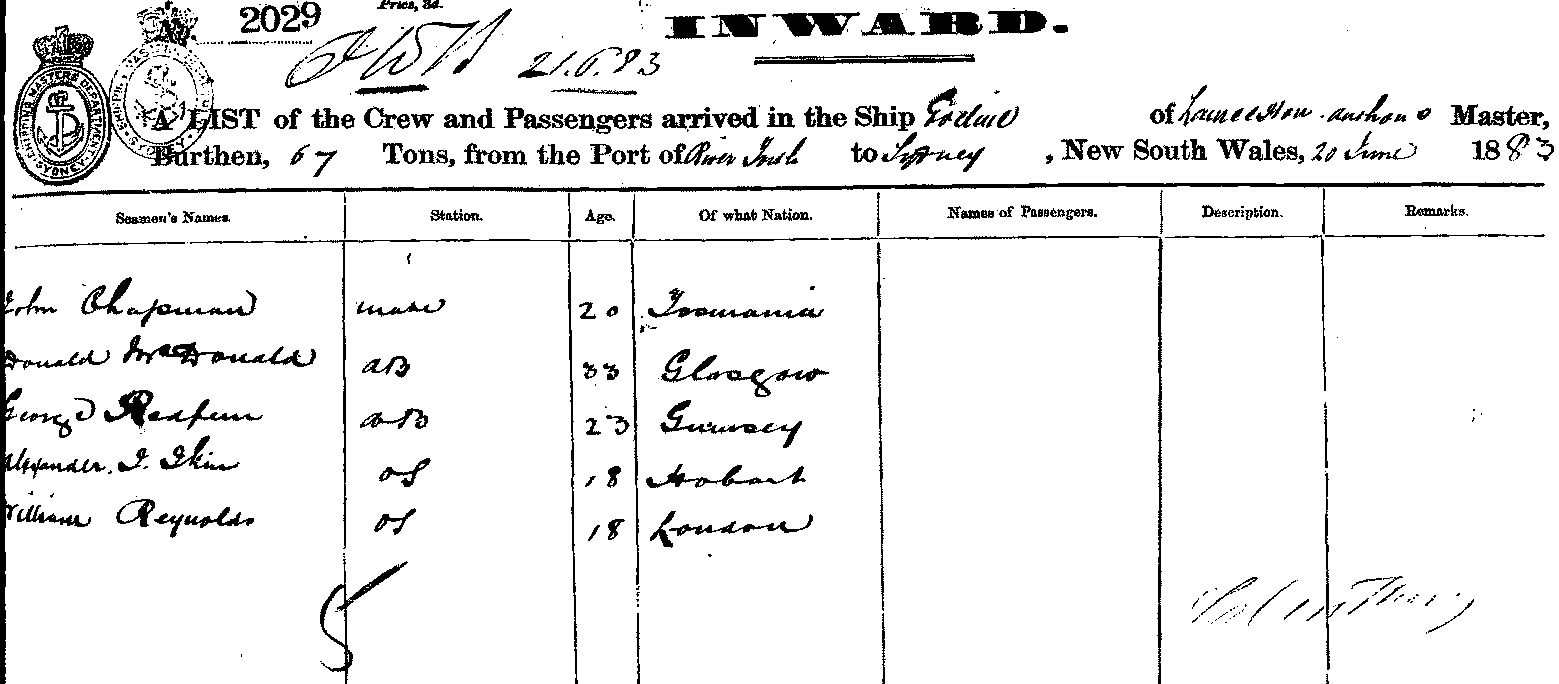 No. 2029
Price, 3d.
INWARD.
21.6.83
SHIPPING MASTERS DEPARTMENT SYDNEY
A LIST of the Crew and Passengers arrived in the Ship of Launceston Master,
Burthen, 67 Tons, from the Port of River to Sydney, New South Wales, 20 June 1883
Seamen's Names. Station. Age. Of what Nation. Names of Passengers. Description. Remarks.
John Chapman mate 20 Tasmania
Donald McDonald AB 33 Glasgow
George Redfern AB 23 Guernsey
Alexander. OS 18 Hobart
William Reynolds OS 18 London
5